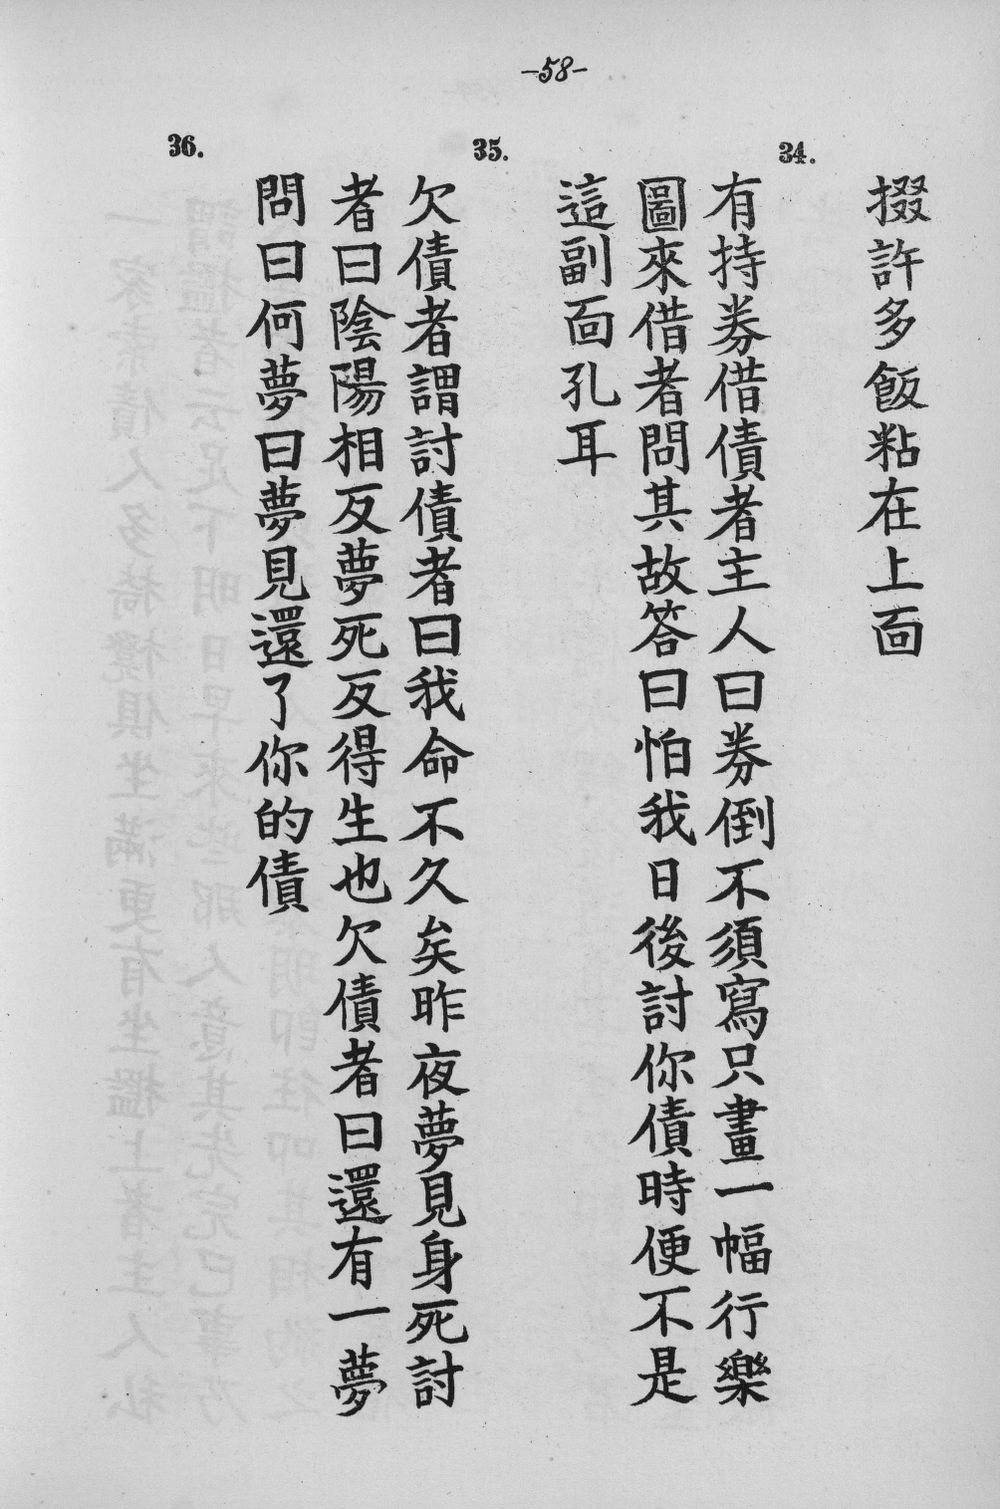 -58-
掇許多飯粘在上面
34.
有持券借債者主人曰券倒不須寫只畫一幅行樂
圖來借者問其故答曰怕我日後討你債時便不是
這副面孔耳
35.
欠債者謂討債者曰我命不久矣昨夜夢見身死討
者曰陰陽相反夢死反得生也欠債者曰還有一夢
問曰何夢曰夢見還了你的債
36.